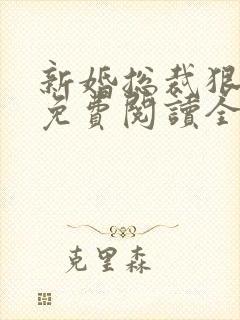 新婚总裁狠
免費閱讀全
克里森